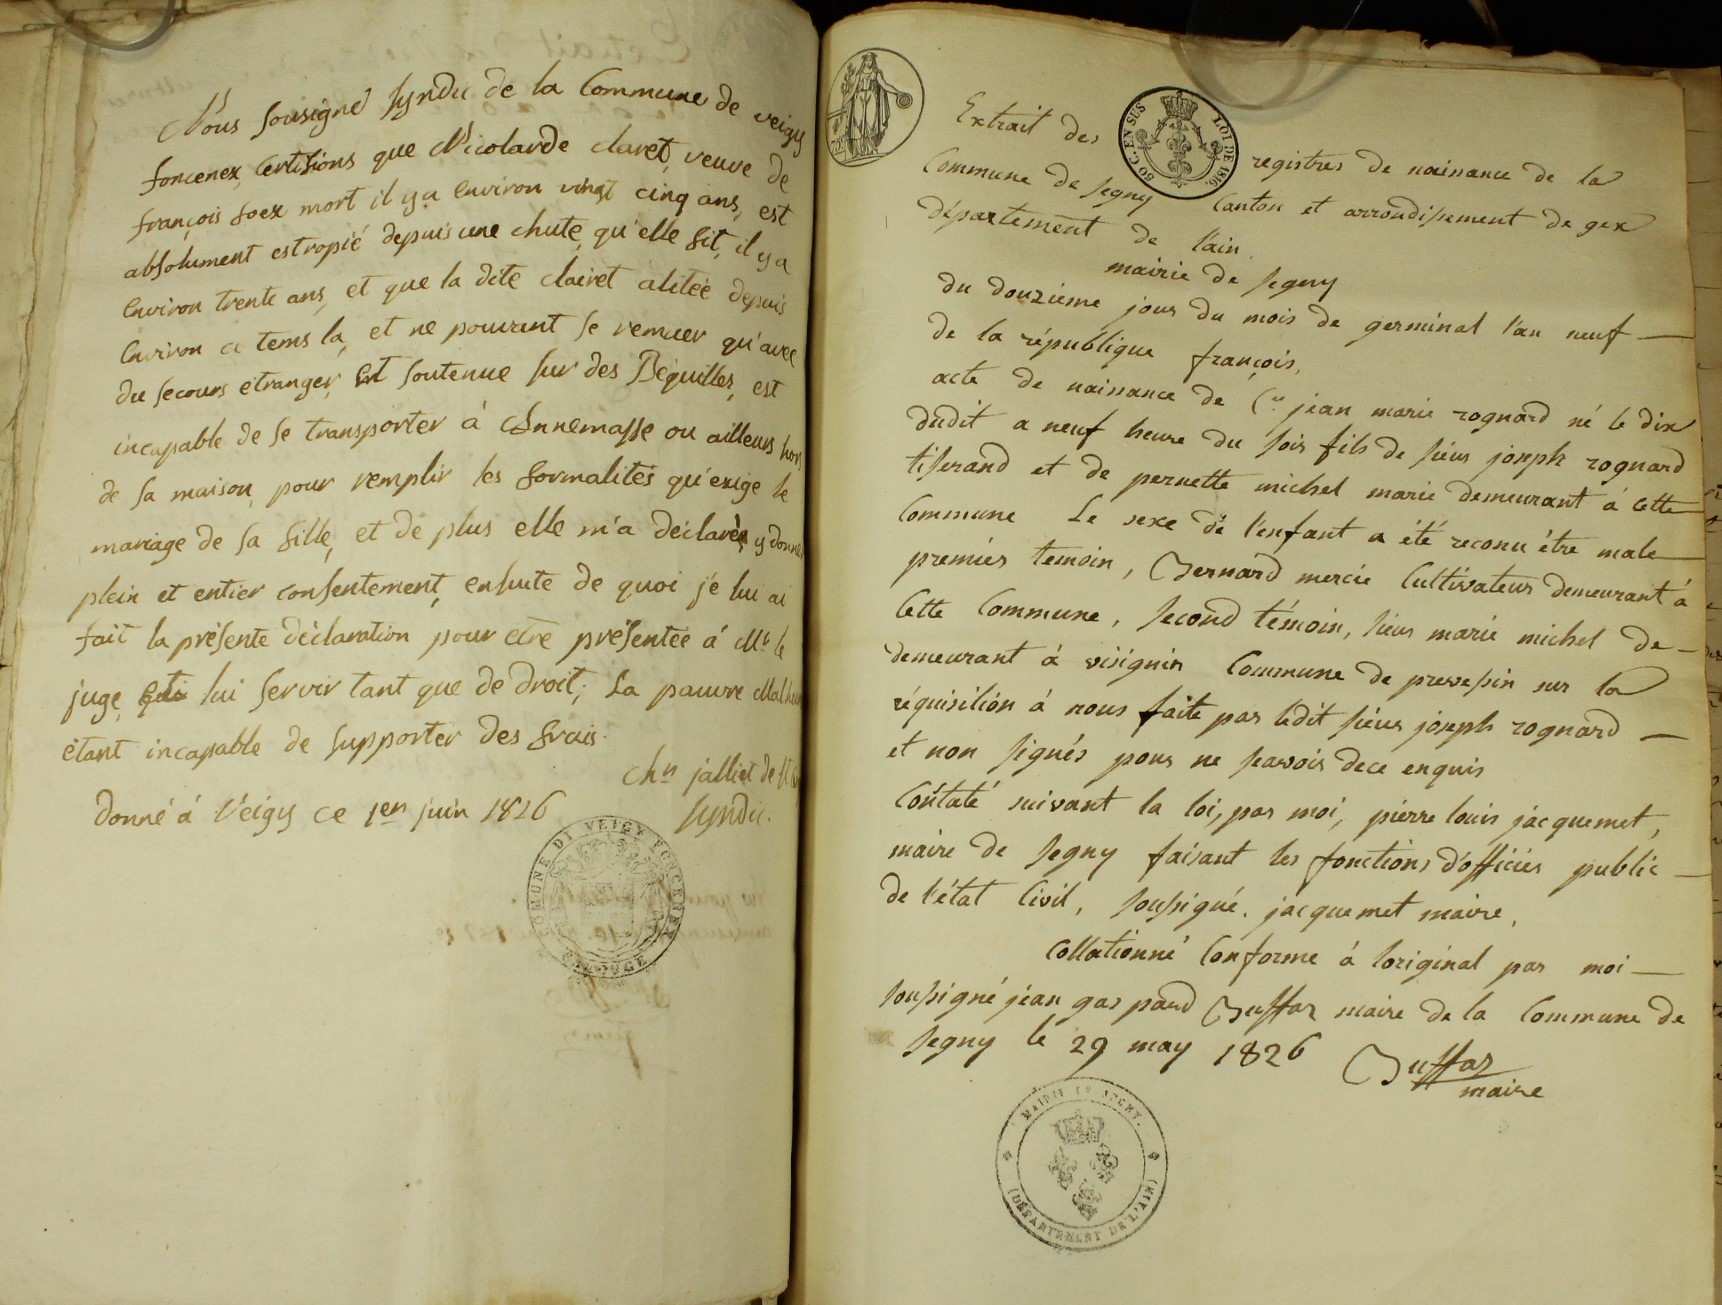 Nous sousigné syndic de la Commune de veigy
foncenex, Certifions que Nicolarde claret, veuve de
françois foex mort il y a environ vingt cinq ans, est
absolument estropié depuis une chute, qu'elle fit, il y a
Environ trente ans, et que la dite clairet alitée depuis
Environ ce tems la, et ne pouvant se remuer qu'avec
du secours etranger, Et soutenue sur des Béquilles, est
incapable de se transporter à Annemasse ou ailleurs hors
de sa maison, pour remplir les formalités qu'exige le
mariage de sa fille, et de plus elle m'a déclaré, y donner
plein et entier consentement, ensuite de quoi je lui ai
fait la présente déclaration pour etre présentée à Mr. le
juge, lui servir tant que de droit; La pauvre
étant incapable de supporter des frais.
chn jalliet de st
donné à Veigy ce 1er juin 1826 syndic.
COMUNE DI VEIGY FONCENEX
Extrait des registres de naisance de la
Commune de segny Canton et arrondisement de gex
département de l'ain
mairie de segny
du douzième jour du mois de germinal l'an neuf
de la république françois,
acte de naisance de jean marie rognard né le dix
dudit a neuf heure du soir fils de sieur joseph rognard
tiserand et de pernette michel marie demeurant à cette
Commune Le sexe de l'enfant a été reconu être male
premier temoin, Bernard mercie Cultivateur demeurant à
Cette Commune, second témoin, sieur marie michel de-
demeurant à visignin Commune de prevesin sur la
réquisition à nous faite par ledit sieur joseph rognard
et non signés pour ne savoir de ce enquis
Constaté suivant la loi, par moi, pierre louis jacquemet,
maire de segny faisant les fonctions d'officier public
de l'état Civil, sousigné. jacquemet maire,
Collationné Conforme à loriginal par moi
sousigné jean gaspard Buffaz maire de la Commune de
segny le 29 may 1826 Buffaz
maire
80 C. EN SUS
LOI DE 1816.
MAIRIE DE SEGNY.
(DÉPARTEMENT DE L'AIN)